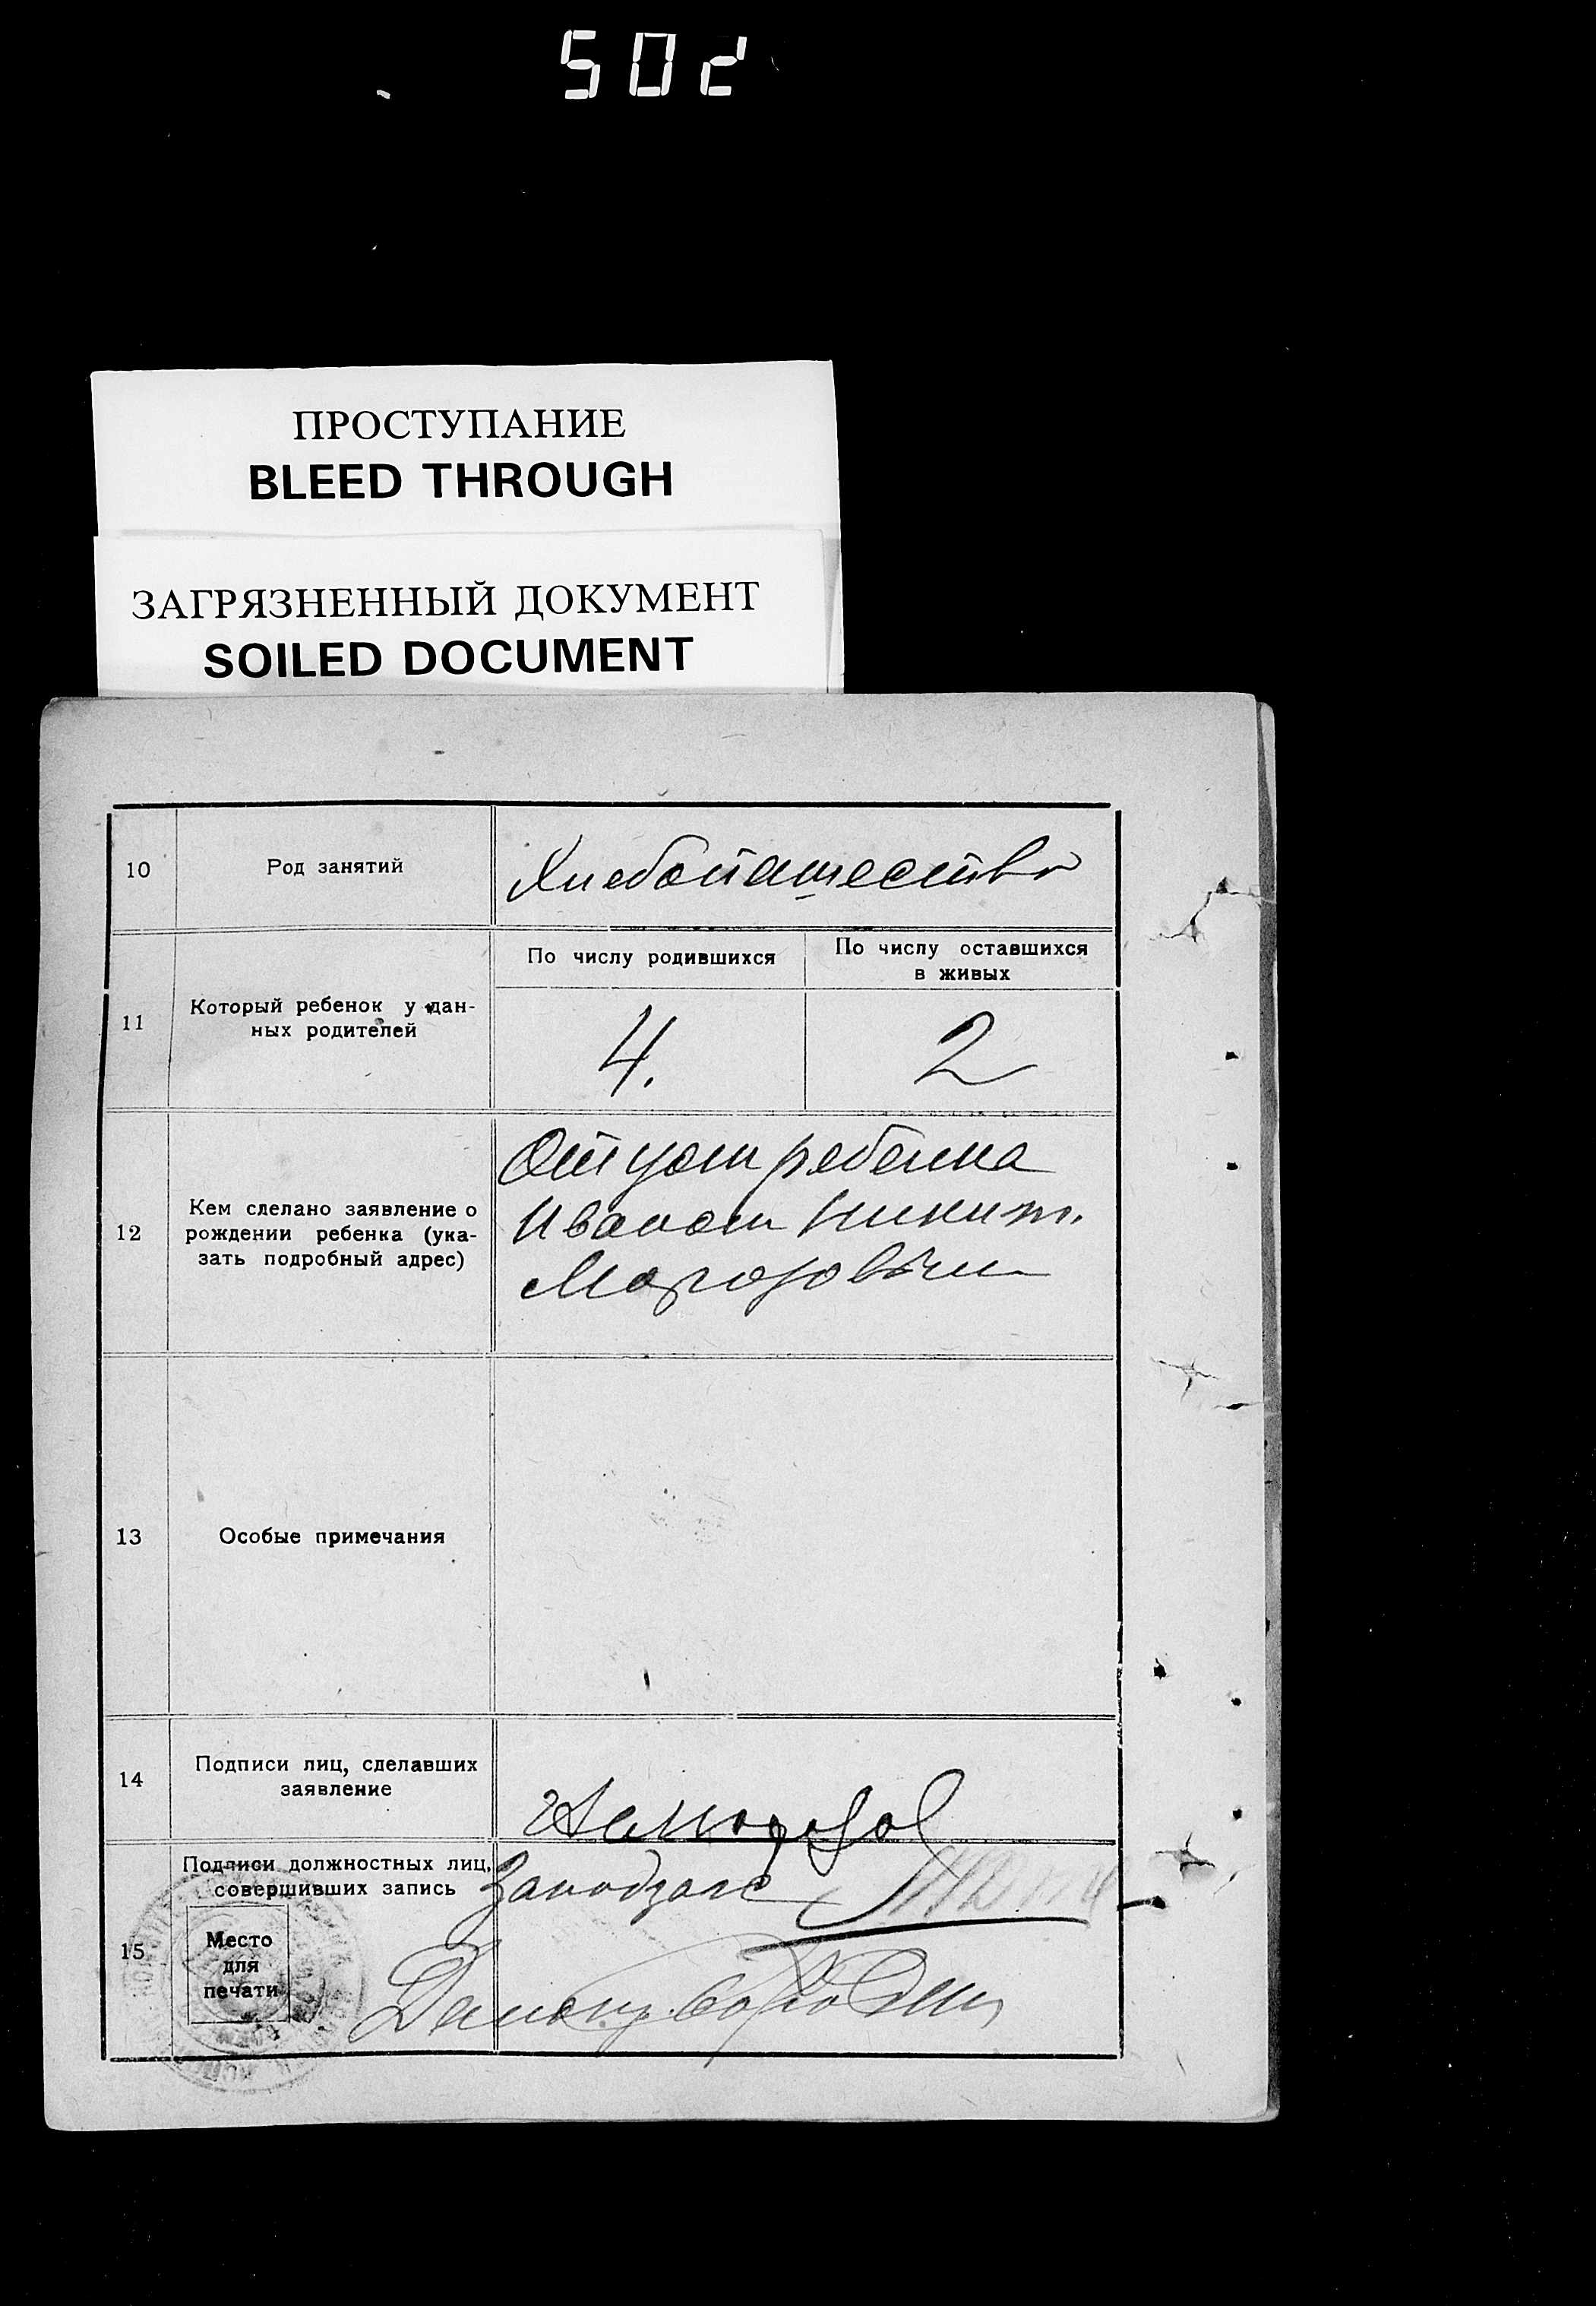 502
ПРОСТУПАНИЕ
BLEED THROUGH
ЗАГРЯЗНЕННЫЙ ДОКУМЕНТ
SOILED DOCUMENT
10
Род занятий
Хлебопашество
11
Который ребенок у дан-
ных родителей
По числу родившихся
4.
По числу оставшихся
в живых
2
12
Кем сделано заявление о
рождении ребенка (ука-
зать подробный адрес)
Отцом ребенка
Иваном Никит.
Морозовым
13
Особые примечания
14
Подписи лиц, сделавших
заявление
Морозов
15
Подписи должностных лиц,
совершивших запись
Место
для
печати
Завподзагс